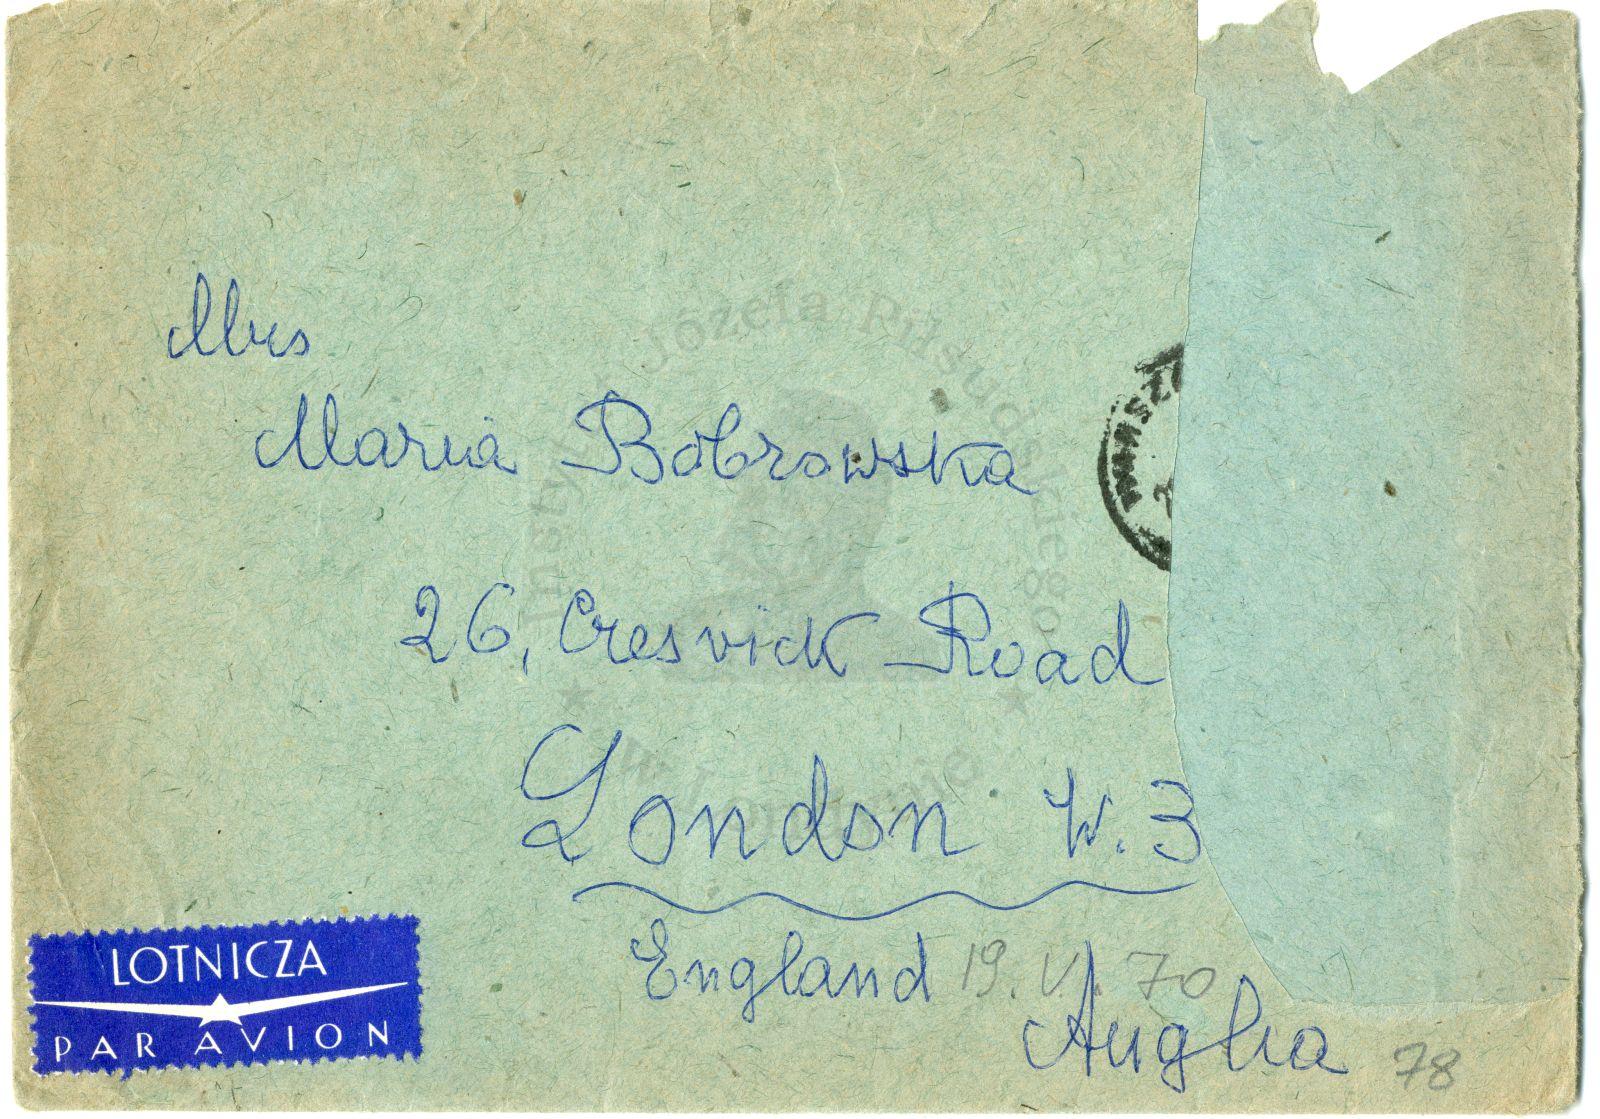 Mrs
Maria Bobrowska
26, Cresvick Road
London W. 3
England 19. V. 70
Anglia 78
LOTNICZA
PAR AVION
WARSZ
Instytut Józefa Piłsudskiego
w Londynie